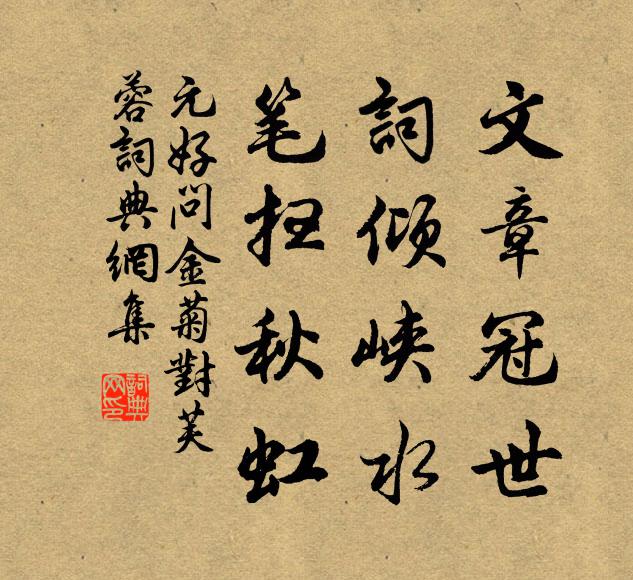 文章冠世
詞倾峡水
笔扫秋虹
元好问金菊對芙
蓉詞典網集
詞典
网印